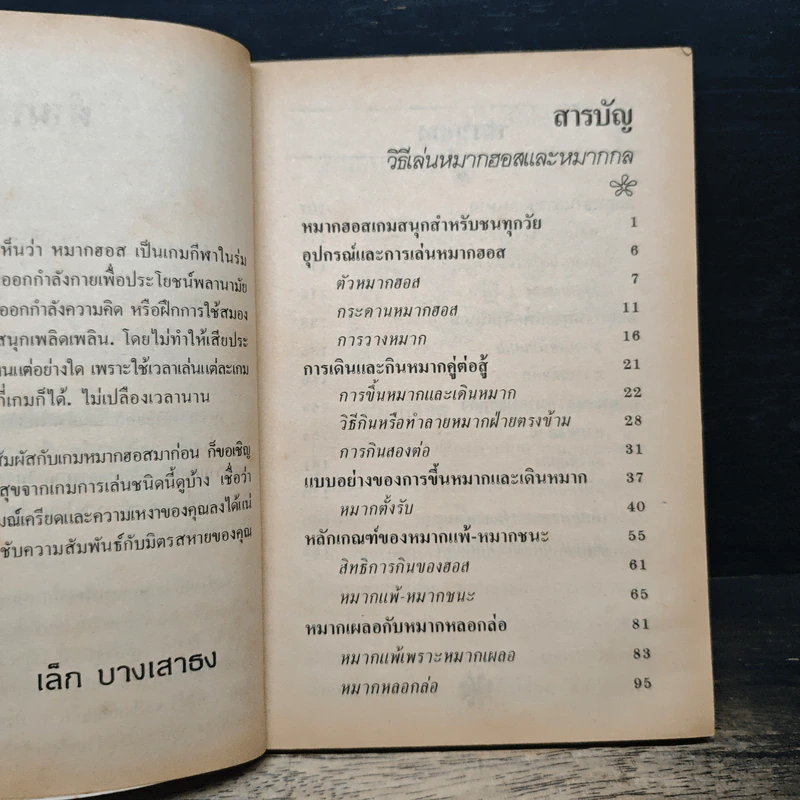 ห็นว่า หมากฮอส เป็นเกมกีฬาในร่ม
ออกกำลังกายเพื่อประโยชน์พลานามัย
ออกกำลังความคิด หรือฝึกการใช้สมอง
สนุกเพลิดเพลิน. โดยไม่ทำให้เสียประ
านแต่อย่างใด เพราะใช้เวลาเล่นแต่ละเกม
กี่เกมก็ได้. ไม่เปลืองเวลานาน
สัมผัสกับเกมหมากฮอสมาก่อน ก็ขอเชิญ
สุขจากเกมการเล่นชนิดนี้ดูบ้าง เชื่อว่า
มณ์เครียดและความเหงาของคุณลงได้แน่
ชับความสัมพันธ์กับมิตรสหายของคุณ
เล็ก บางเสาธง
สารบัญ
วิธีเล่นหมากฮอสและหมากกล
หมากฮอสเกมสนุกสำหรับชนทุกวัย 1
อุปกรณ์และการเล่นหมากฮอส 6
ตัวหมากฮอส 7
กระดานหมากฮอส 11
การวางหมาก 16
การเดินและกินหมากคู่ต่อสู้ 21
การขึ้นหมากและเดินหมาก 22
วิธีกินหรือทำลายหมากฝ่ายตรงข้าม 28
การกินสองต่อ 31
แบบอย่างของการขึ้นหมากและเดินหมาก 37
หมากตั้งรับ 40
หลักเกณฑ์ของหมากแพ้-หมากชนะ 55
สิทธิการกินของฮอส 61
หมากแพ้-หมากชนะ 65
หมากเผลอกับหมากหลอกล่อ 81
หมากแพ้เพราะหมากเผลอ 83
หมากหลอกล่อ 95